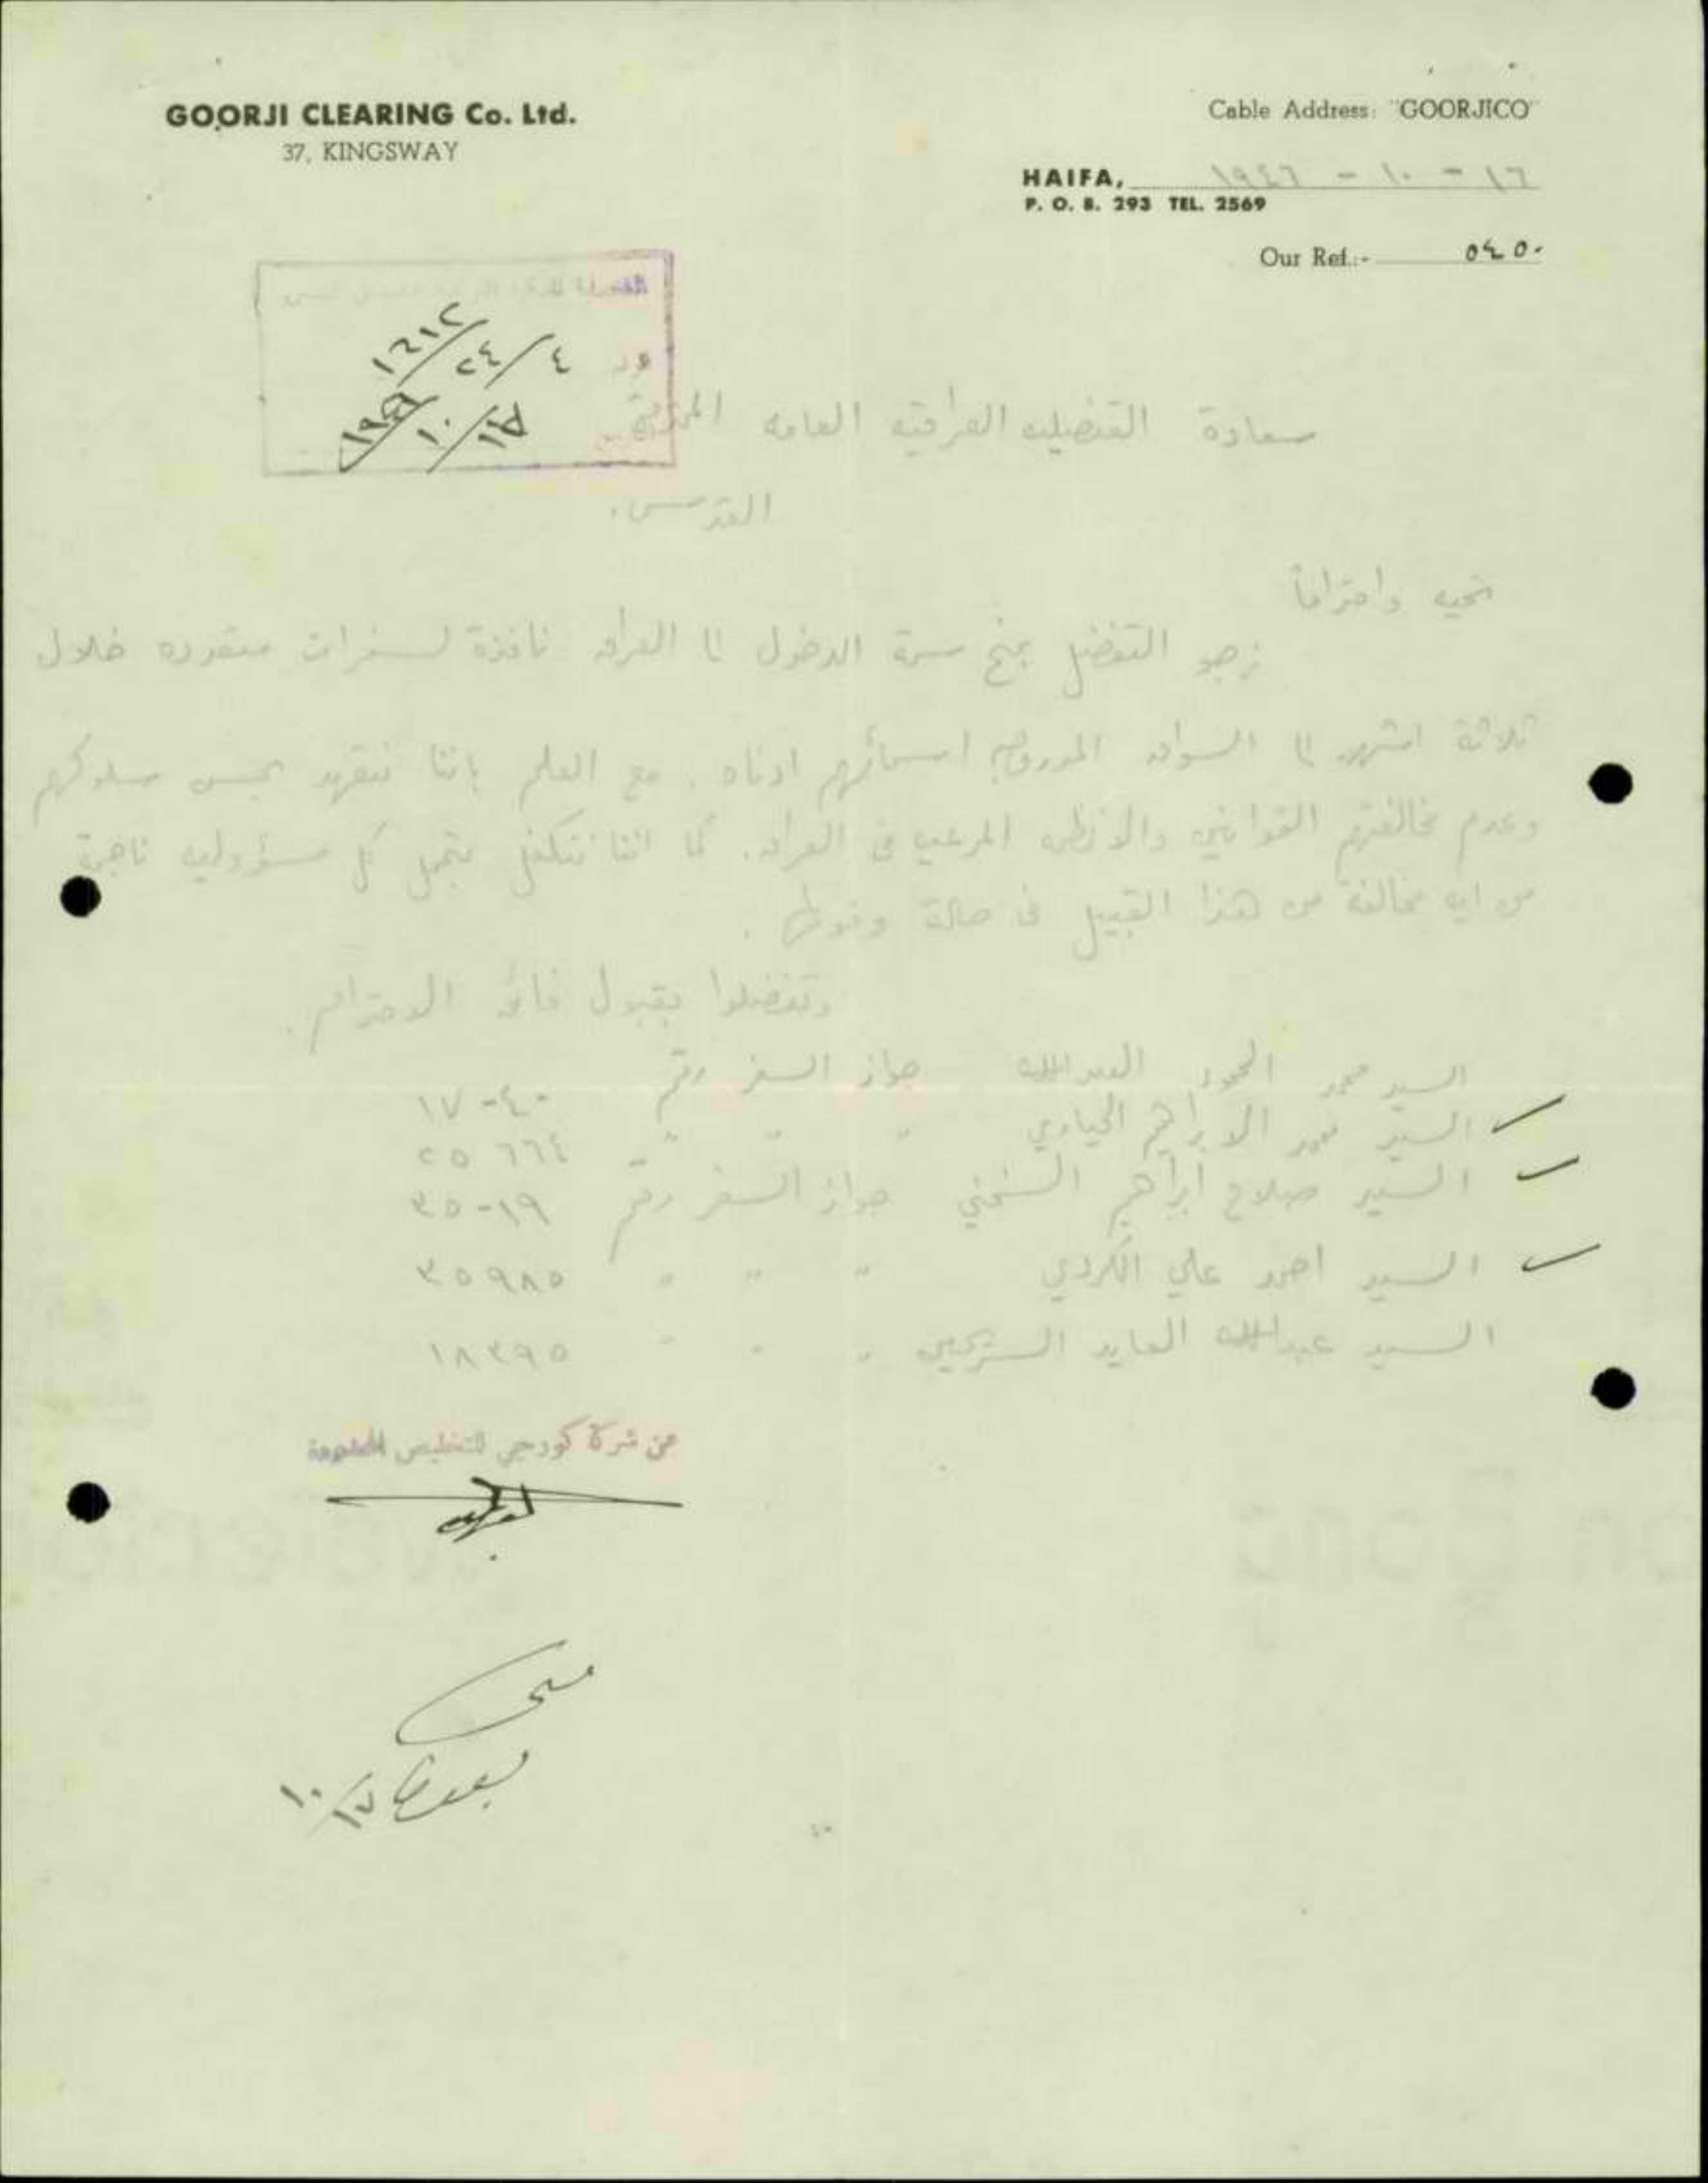 GOORJI CLEARING Co. Ltd.
37, KINGSWAY
Cable Address: "GOORJICO"
HAIFA, ١٦ - ١٠ - ١٩٤٦
P. O. B. 293 TEL. 2569
Our Ref.:- ٥٤٥٠
١٦١٢
٤/٢٤
١٠/١٩٤٦
سعادة القنصليه العراقيه العامه المحترمة
القدس.
تحيه واحتراماً
نرجو التفضل بمنح سمة الدخول الى العراق نافذة لسفرات متعدده خلال
ثلاثة اشهر الى السواق المدروجه اسمائهم ادناه. مع العلم باننا نتعهد بحسن سلوكهم
وعدم مخالفتهم القوانين والانظمه المرعيه في العراق. كما اننا نتكفل بتحمل كل مسؤوليه ناجمة
من ايه مخالفة من هذا القبيل في حالة وقوعها.
وتفضلوا بقبول فائق الاحترام.
السيد محمد الحمود العبدالله جواز السفر رقم ١٧٠٤٠
السيد محمد الابراهيم الحيادي " " " ٢٥٦٦٤
السيد صلاح ابراهيم السخني جواز السفر رقم ٣٥٠١٩
السيد احمد علي الكردي " " " ٣٥٩٨٥
السيد عبدالله العايد " " " ١٨٣٩٥
عن شركة كورجي للتخليص المحدودة
١٧/١٠